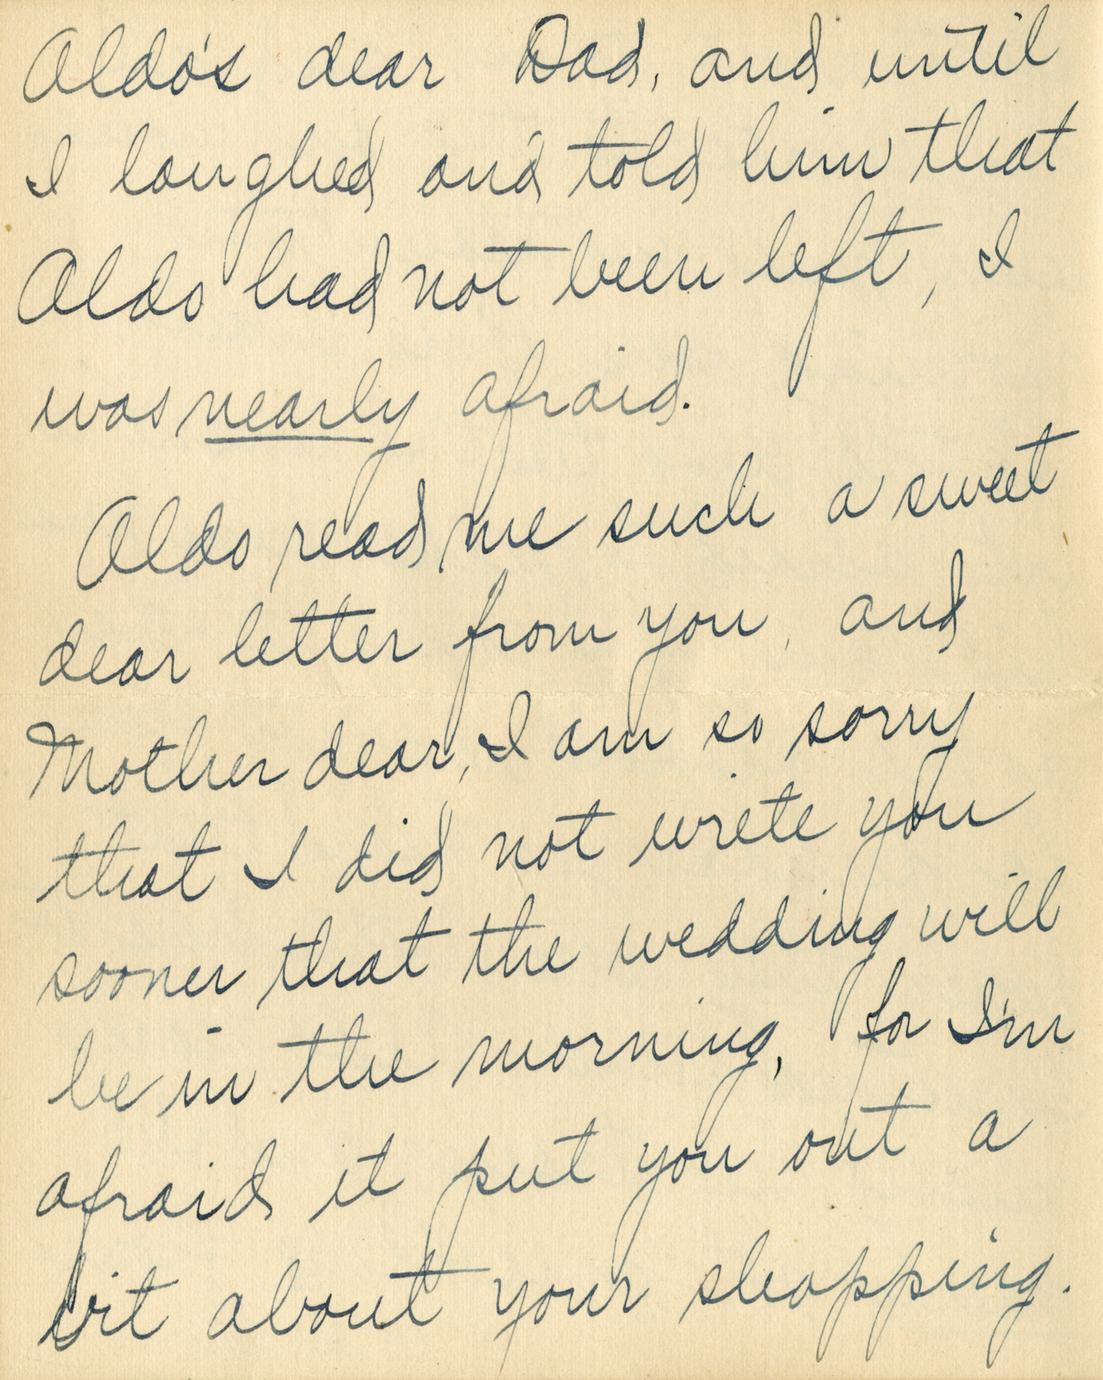 Aldo's dear Dad, and until
I laughed and told him that
Aldo had not been left, I
was nearly afraid.
Aldo read me such a sweet
dear letter from you, and
Mother dear, I am so sorry
that I did not write you
sooner that the wedding will
be in the morning, for I'm
afraid it put you out a
bit about your shopping.